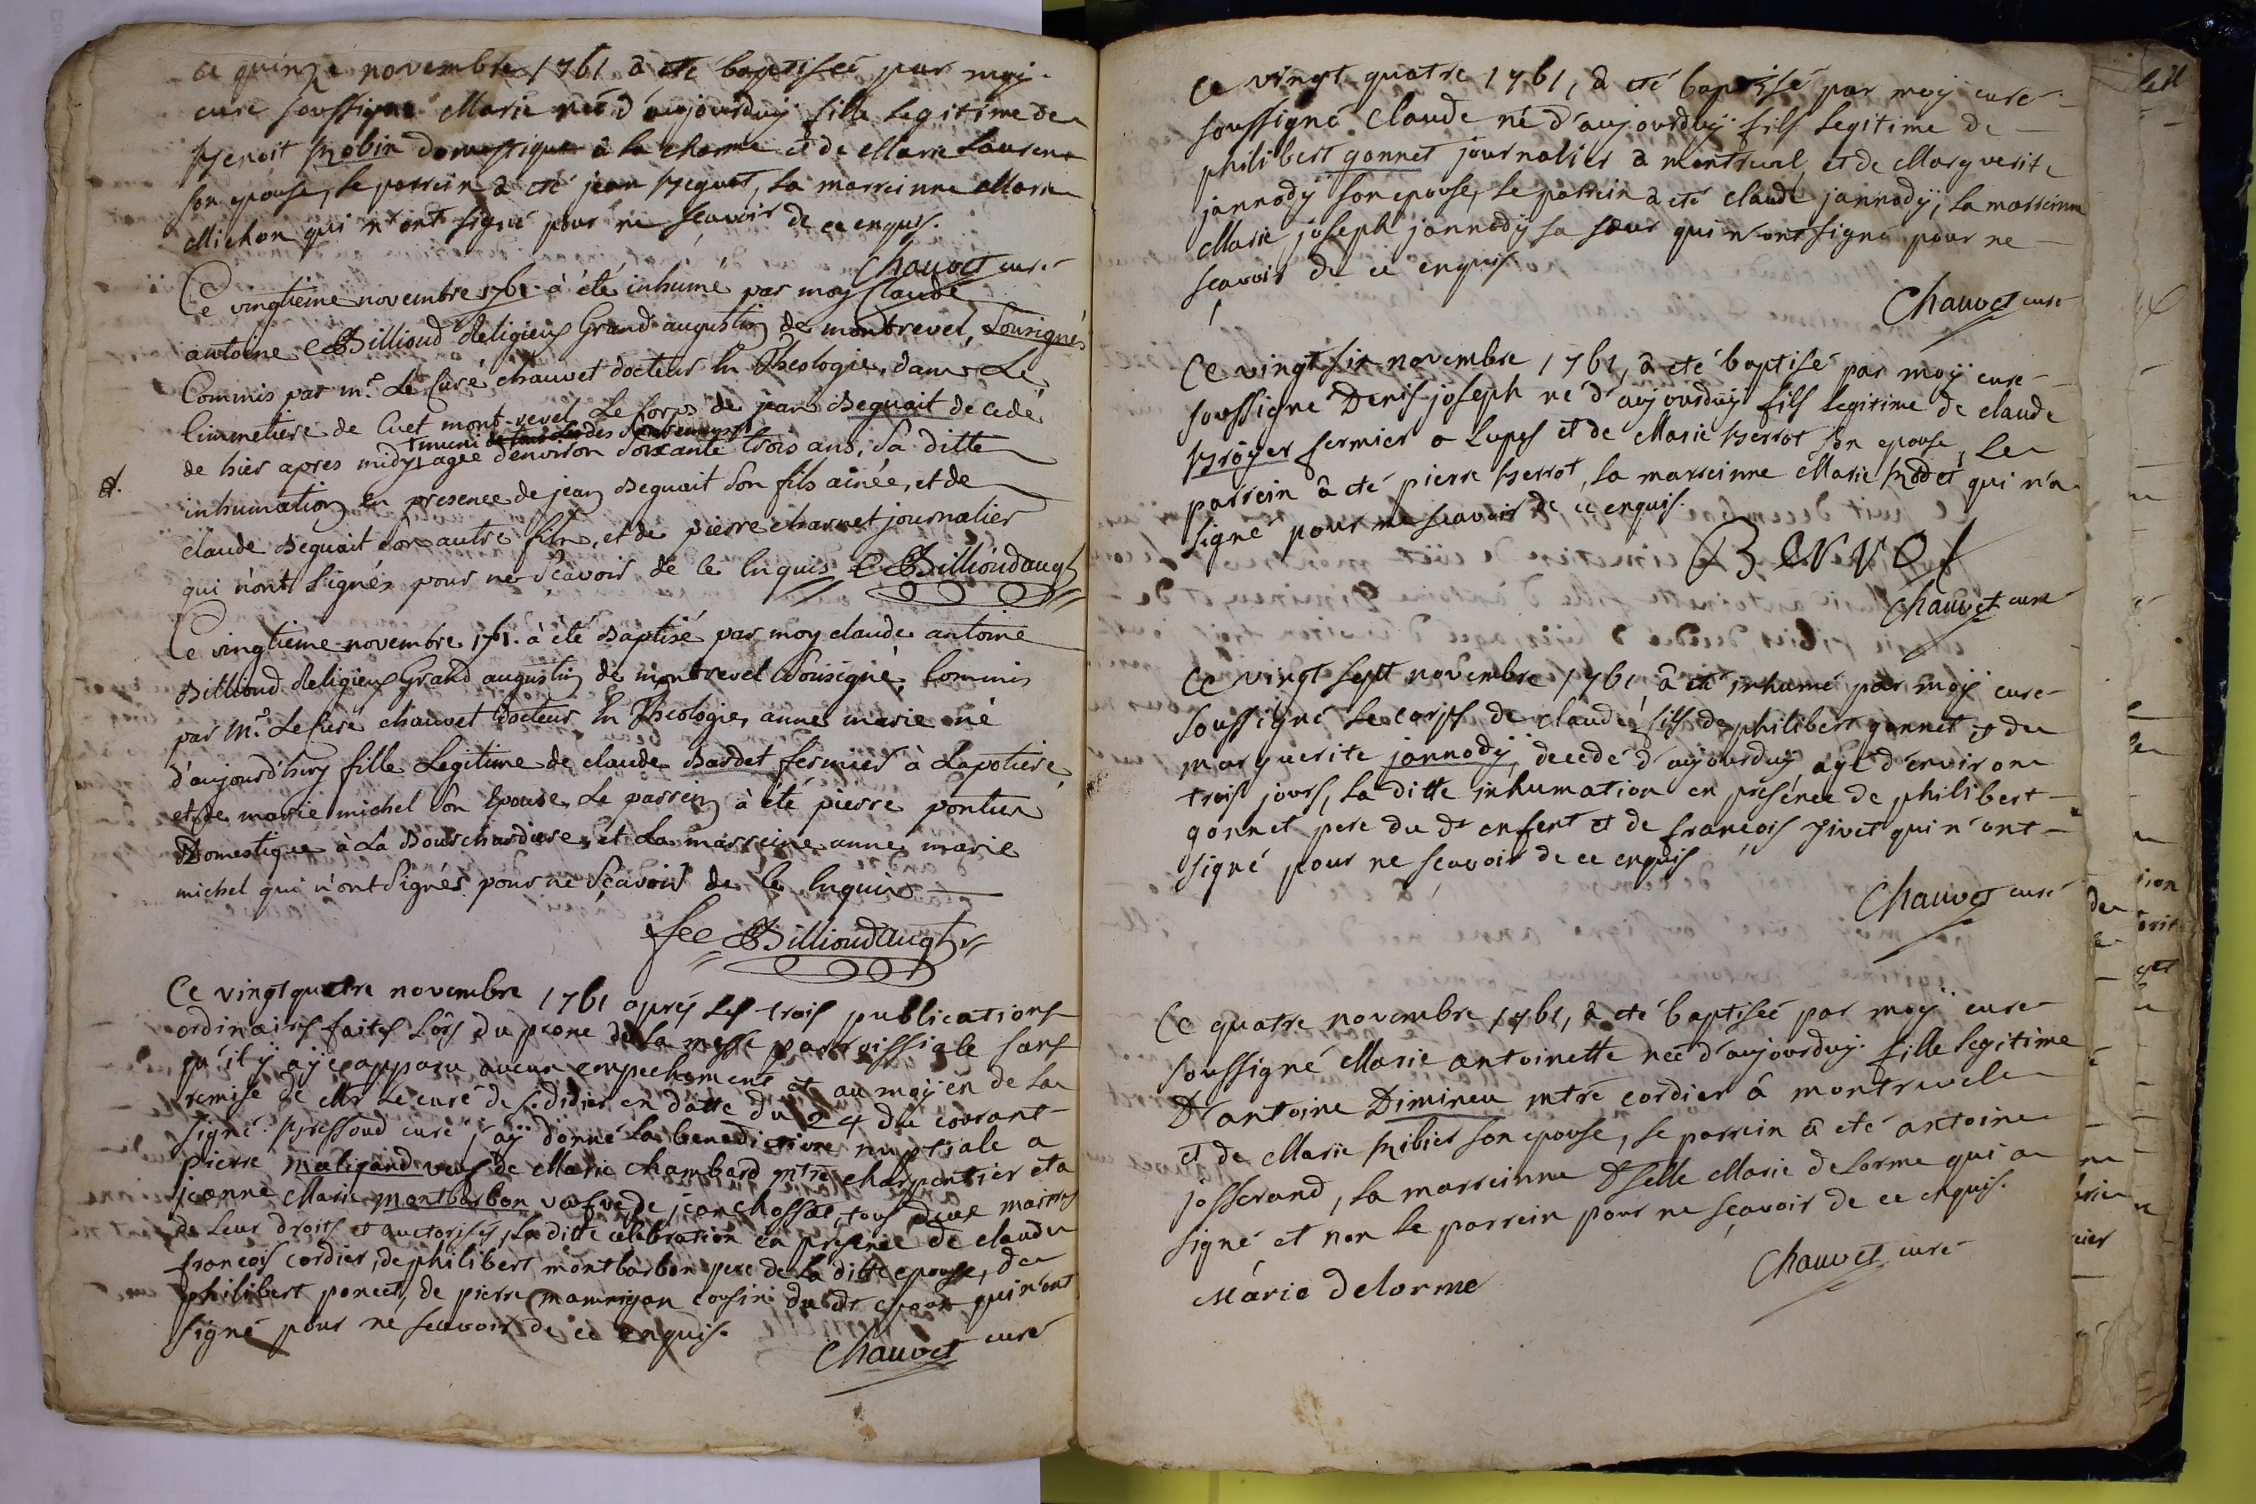 Ce quinze novembre 1761 â eté baptisée par moÿ
curé soussigné Marie neé d'aujourduÿ fille legitime de
Benoit Robin domestique â la charme et de Marie Laurent
son epouse, le parrein â eté jean Beguet, la marreinne Marie
Michon qui n'ont signé pour ne sçavoir de ce enquis.
Chauvet curé
Ce vingtieme novembre 1761 à été inhumé par moy Claude
antoine Billioud Religieux Grand augustin de montrevel, Sousigné
Commis par mr. Le Curé chauvet docteur En Theologie, dans Le
Cimmetiere de Cuet mont-revel Le Corps de jean Beguait decedé
muni des Sacremens
de hier apres midy, agée d'environ Soixante trois ans, Sa ditte
inhumation en presence de jean Beguait Son fils ainée, et de
claude Beguait Son autre fils, et de pierre charvet journalier
qui n'ont Signés pour ne Sçavoir de ce Enquis Billioudaugt
Ce vingtieme novembre 1761. à été Baptisé par moy claude antoine
Billioud Religieux Grand augustin de montrevel Sousigné, Commis
par Mr. Le Curé chauvet Docteur En Theologie, anne marie né
d'aujourd'huy fille Legitime de claude Bardet fermier à Lapotiere
et de marie michel Son Epouse, Le parrein à été pierre pontus
Domestique à La Bourchardiere, et La marreine anne marie
michel qui n'ont Signés pour ne Sçavoir de ce Enquis
Billioudaugt
Ce vingt quatre novembre 1761 aprés les trois publications
ordinaires faites lors du prone de la messe parroissiale sans
qu'il ÿ aÿe apparu aucun empechement et au moÿen de la
remise de Mr le curé de st. didier en datte du 24 du courant
signé Bressoud curé, j'aÿ donné la benediction nuptiale a
pierre maligand veuf de Marie Chambard mtre charpentier et a
jeanne Marie montbarbon veufve de jean Chossat, tous deux maitres
de leur droits et auctorisés, la ditte celebration en presence de claude
francois cordier, de philibert montbarbon pere de la ditte epouse, de
philibert poncet, de pierre mamrigan cousin du dt epoux qui n'ont
signé pour ne sçavoir de ce enquis.
Chauvet curé
Ce vingt quatre 1761, â eté baptisé par moÿ curé
soussigné Claude né d'aujourduÿ fils legitime de
philibert gonnet journalier a montrevel, et de Marguerite
jannodÿ son epouse, le parrein â eté claude jannodÿ, la marreinne
Marie joseph jannodÿ sa sœur qui n'ont signé pour ne
scavoir de ce enquis
Chauvet curé
Ce vingt six novembre 1761, â eté baptisé par moÿ curé
soussigné Denis joseph né d'aujourduÿ fils legitime de claude
Broÿer fermier a Lupes et de Marie Berrot son epouse, le
parrein â eté pierre Berrot, la marreinne Marie Rodet qui n'a
signé pour ne scavoir de ce enquis.
Berrot
Chauvet curé
Ce vingt sept novembre 1761, â eté inhumé par moÿ curé
soussigné le corps de claude, fils de philibert gonnet et de
marguerite jannodÿ, decedé d'aujourduÿ, agé d'environ
trois jours, la ditte inhumation en présence de philibert
gonnet pere du dt enfent et de francois Pivet qui n'ont
signé pour ne sçavoir de ce enquis
Chauvet curé
Ce quatre novembre 1761, â eté baptisée par moÿ curé
soussigné Marie antoinette née d'aujourduÿ. fille legitime
D'antoine Dimineu mtre cordier â montrevel
et de Marie Ribier son epouse, le parrein â eté antoine
josserand, la marreinne Dselle Marie delorme qui a
signé et non le parrein pour ne sçavoir de ce enquis.
Chauvet curé
Marie delorme